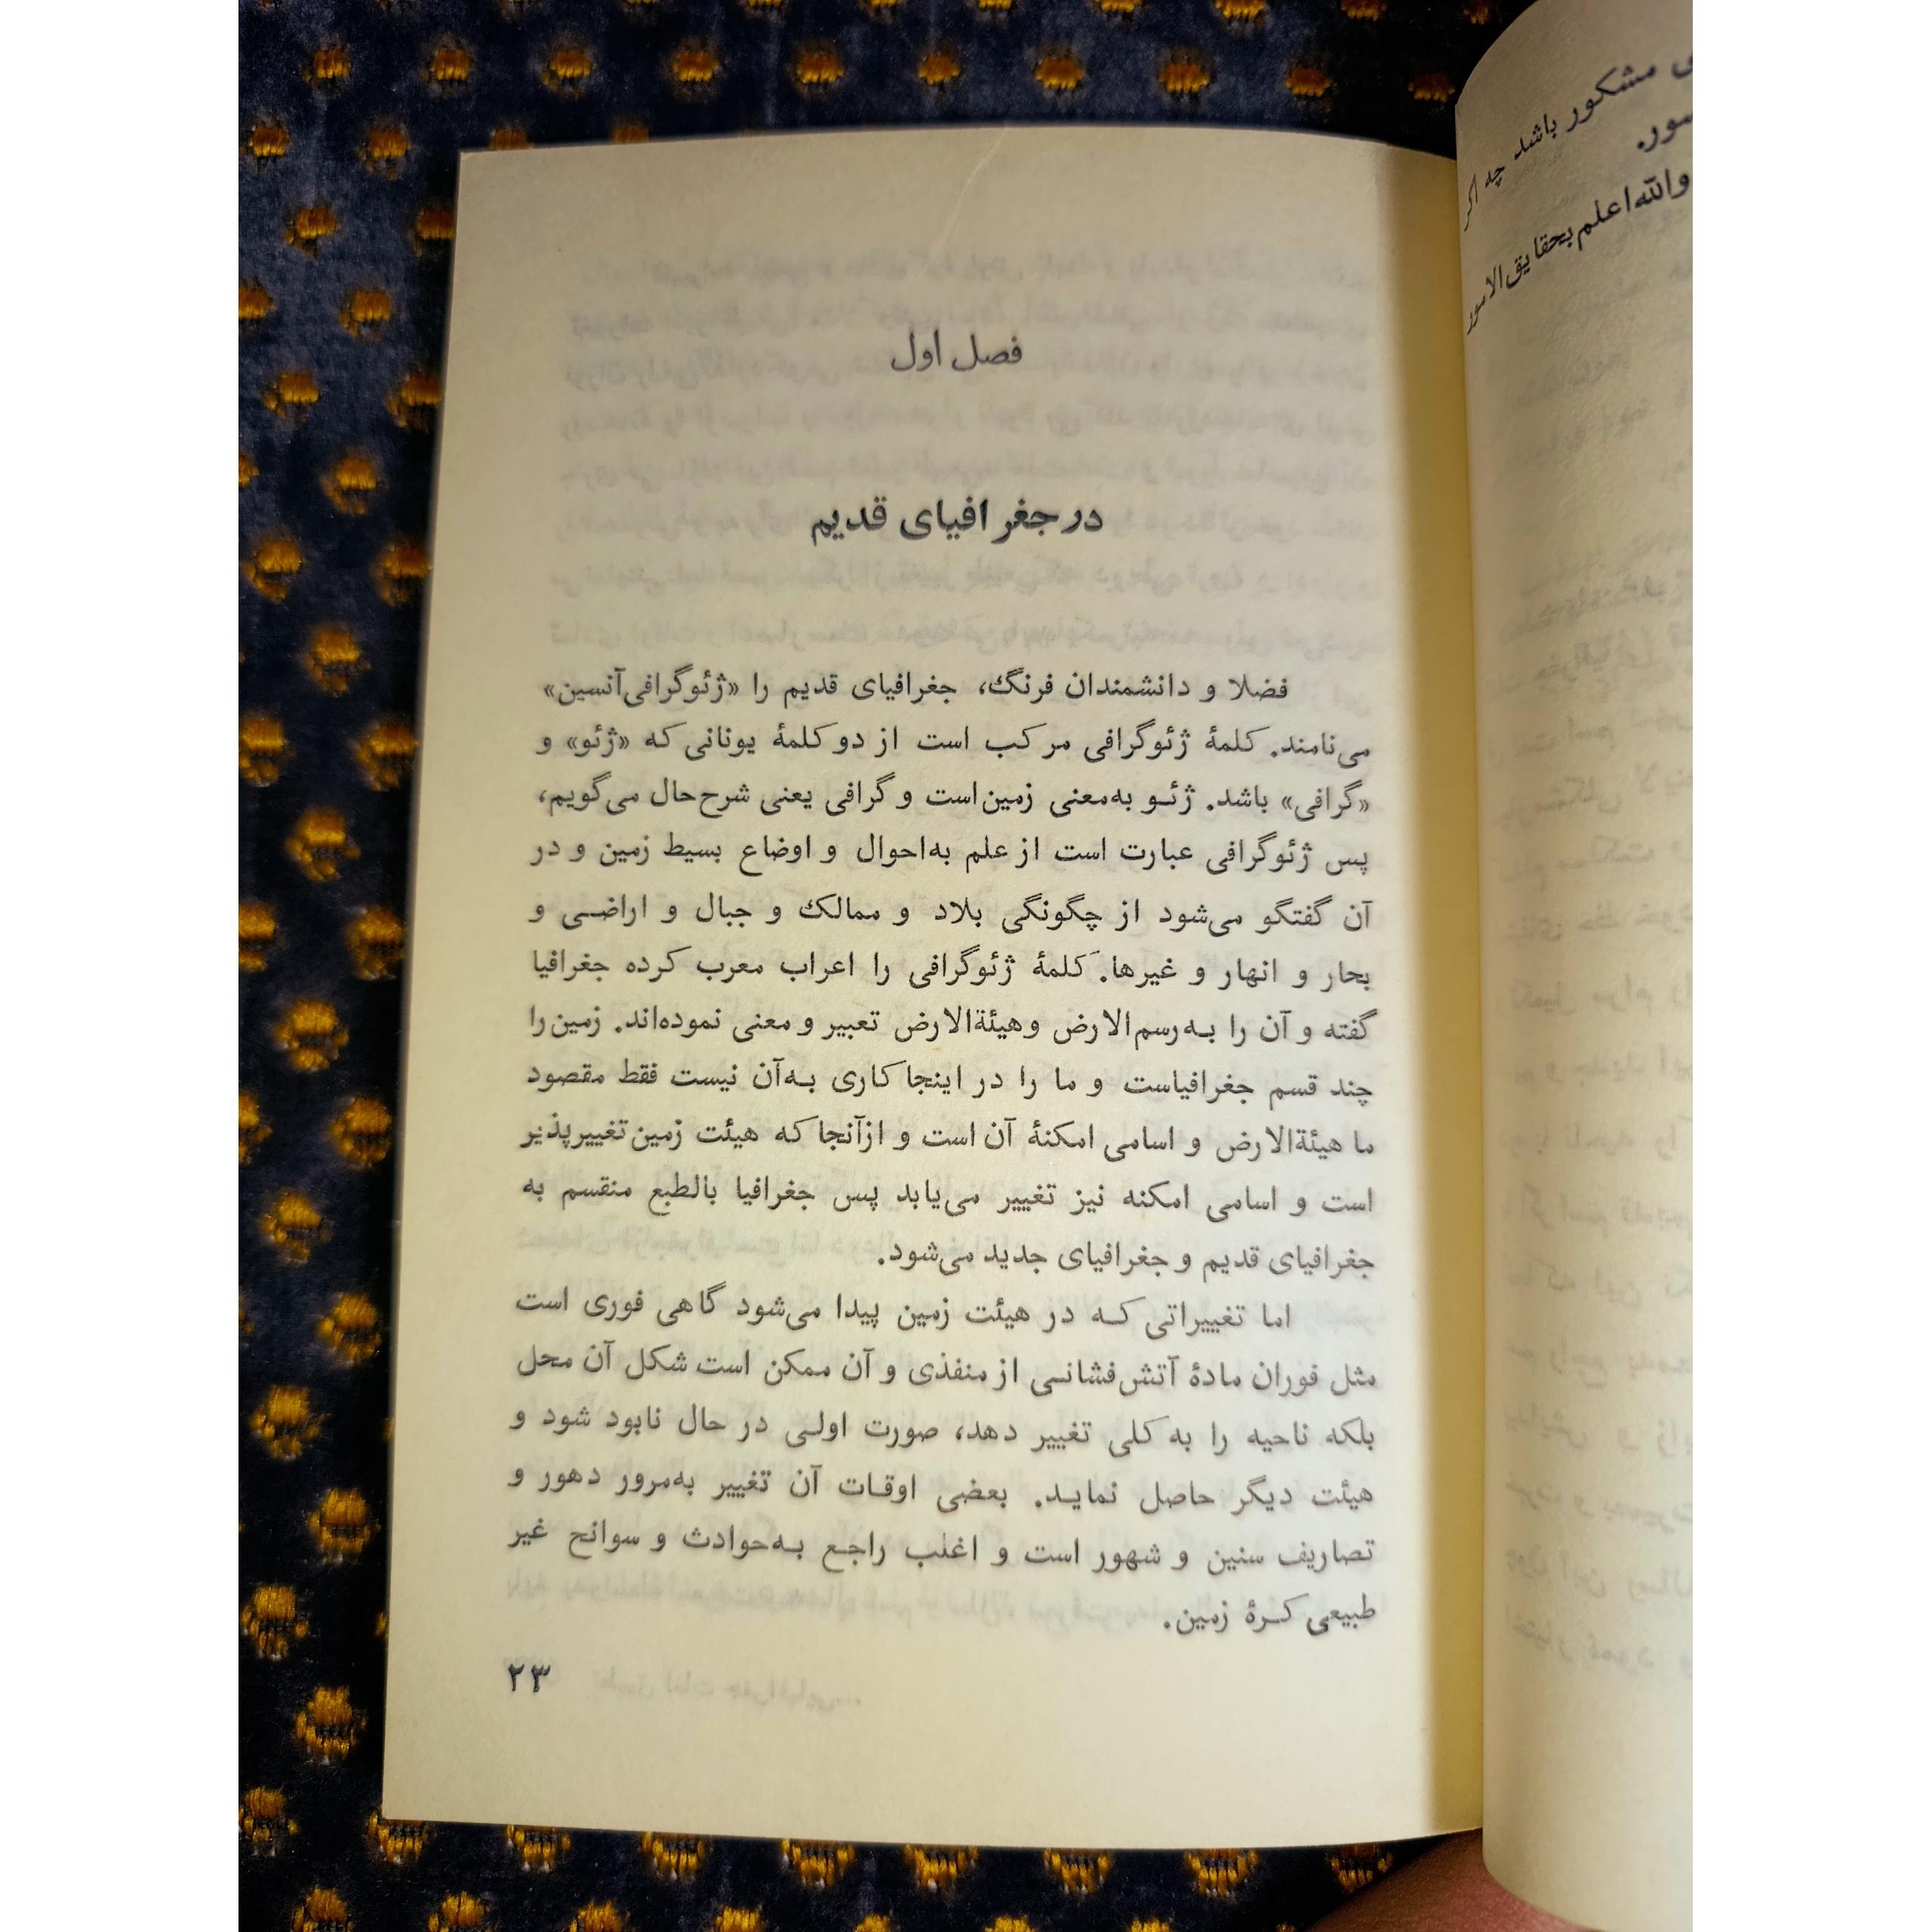 فصل اول
در جغرافیای قدیم
فضلا و دانشمندان فرنگ، جغرافیای قدیم را «ژئوگرافی‌آنسین»
می‌نامند. کلمهٔ ژئوگرافی مرکب است از دو کلمهٔ یونانی که «ژئو» و
«گرافی» باشد. ژئو به‌معنی زمین است و گرافی یعنی شرح‌حال می‌گویم،
پس ژئوگرافی عبارت است از علم به‌احوال و اوضاع بسیط زمین و در
آن گفتگو می‌شود از چگونگی بلاد و ممالک و جبال و اراضی و
بحار و انهار و غیرها. کلمهٔ ژئوگرافی را اعراب معرب کرده جغرافیا
گفته و آن را به‌رسم‌الارض و هیئةالارض تعبیر و معنی نموده‌اند. زمین را
چند قسم جغرافیاست و ما را در اینجا کاری به‌آن نیست فقط مقصود
ما هیئةالارض و اسامی امکنهٔ آن است و ازآنجا که هیئت زمین تغییرپذیر
است و اسامی امکنه نیز تغییر می‌یابد پس جغرافیا بالطبع منقسم به
جغرافیای قدیم و جغرافیای جدید می‌شود.
اما تغییراتی که در هیئت زمین پیدا می‌شود گاهی فوری است
مثل فوران مادهٔ آتش‌فشانی از منفذی و آن ممکن است شکل آن محل
بلکه ناحیه را به کلی تغییر دهد، صورت اولی در حال نابود شود و
هیئت دیگر حاصل نماید. بعضی اوقات آن تغییر به‌مرور دهور و
تصاریف سنین و شهور است و اغلب راجع به‌حوادث و سوانح غیر
طبیعی کرهٔ زمین.
۲۳
مشکور باشد چه اگر
والله اعلم بحقایق الامور